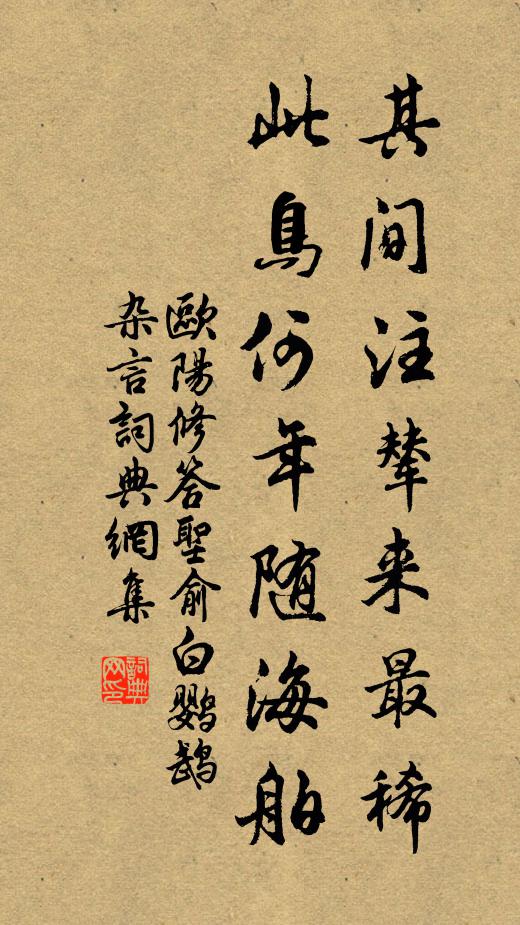 其间注辇来最稀
此鳥何年随海舶
歐陽修答聖俞白鹦鹉
杂言詞典網集
詞典网印